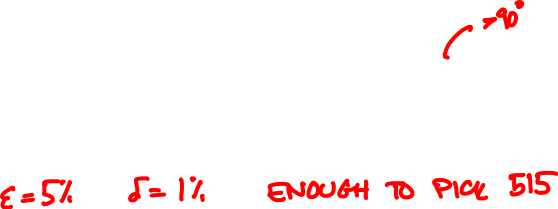 >90°
ε=5% δ=1% ENOUGH TO PICK 515